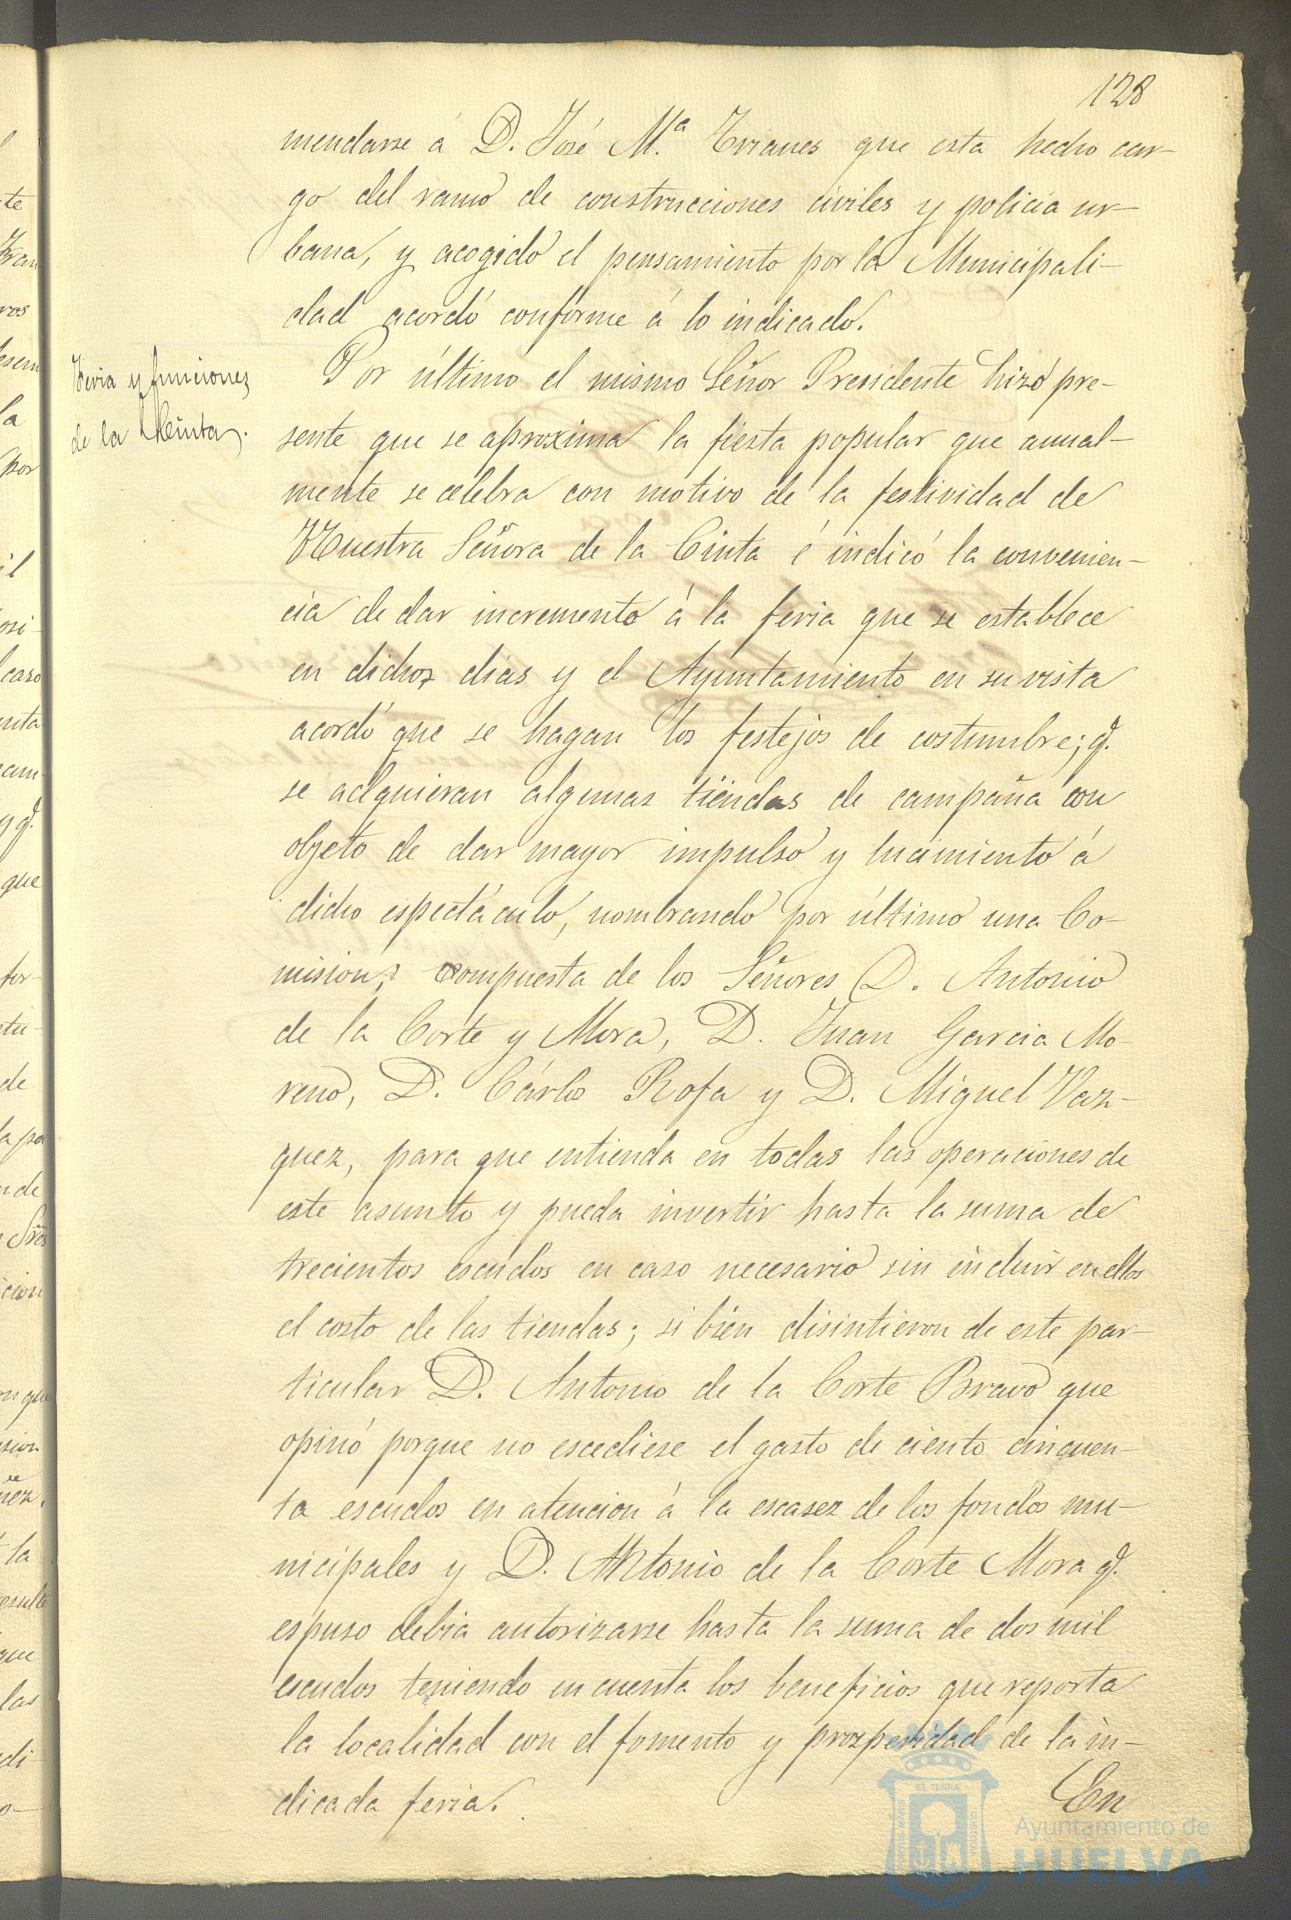 128
mendarse á D. José M.ª Trianes que esta hecho car-
go del ramo de construcciones civiles y policia ur-
bana, y acogido el pensamiento por la Municipali-
dad acordó conforme á lo indicado.
Feria y funciones
de la Cinta.
Por último el mismo Señor Presidente hizo pre-
sente que se aproxima la fiesta popular que anual-
mente se celebra con motivo de la festividad de
Nuestra Señora de la Cinta é indicó la convenien-
cia de dar incremento á la feria que se establece
en dichos dias y el Ayuntamiento en su vista
acordó que se hagan los festejos de costumbre; q.
se adquieran algunas tiendas de campaña con
objeto de dar mayor impulso y lucimiento á
dicho espectáculo, nombrando por último una Co-
mision, compuesta de los Señores D. Antonio
de la Corte y Mora, D. Juan Garcia Mo-
reno, D. Cárlos Rofa y D. Miguel Vaz-
quez, para que entienda en todas las operaciones de
este asunto y pueda invertir hasta la suma de
trecientos escudos en caso necesario sin incluir en ellos
el costo de las tiendas; si bien disintieron de este par-
ticular D. Antonio de la Corte Bravo que
opinó porque no escediese el gasto de ciento cinquen-
ta escudos en atencion á la escasez de los fondos mu-
nicipales y D. Antonio de la Corte Mora q.
espuso debia autorizarse hasta la suma de dos mil
escudos teniendo en cuenta los beneficios que reporta
la localidad con el fomento y prosperidad de la in-
dicada feria.
En
Ayuntamiento de
HUELVA